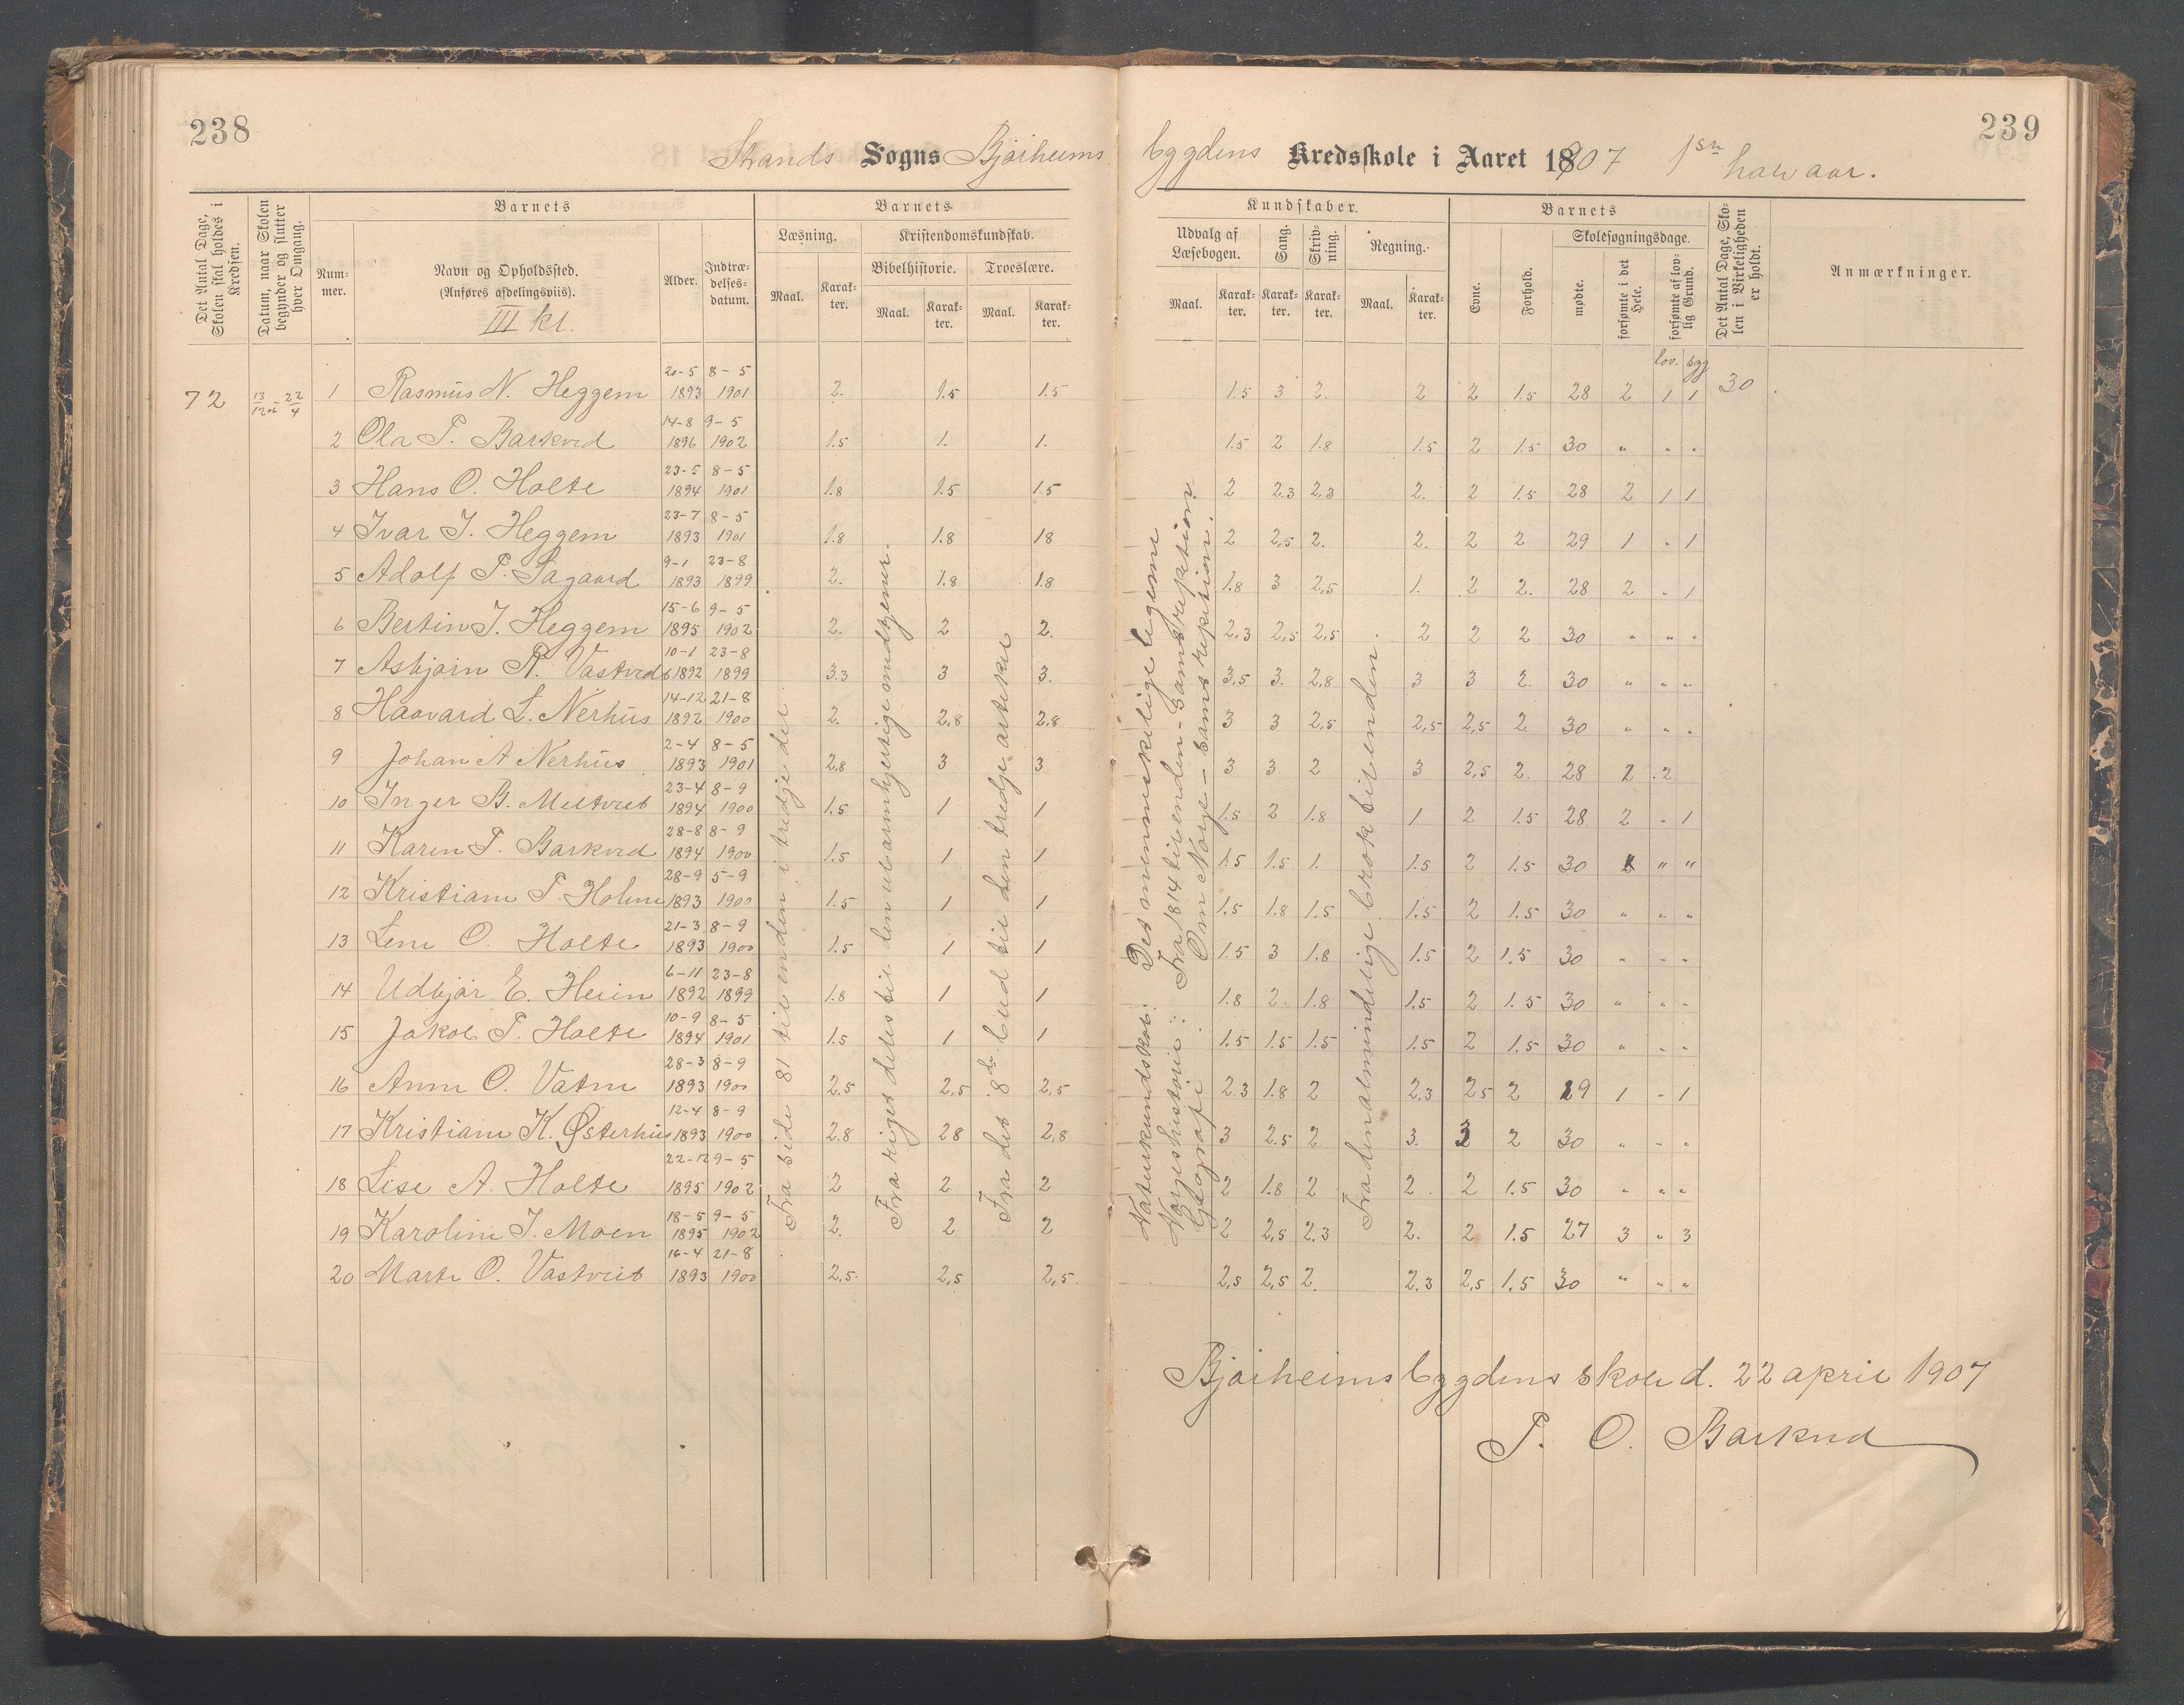 238
239
Strands Sogns Bjørheims bygdens Kredsskole i Aaret 1907 1ste halvaar.
Det Antal Dage, Skolen skal holdes i Kredsen.
Datum, naar Skolen begynder og slutter hver Omgang.
Barnets
Num-mer.
Navn og Opholdssted.
(Anføres afdelingsviis).
III kl.
Alder.
Indtræ-delses-datum.
Barnets
Læsning.
Maal.
Karak-ter.
Kristendomskundskab.
Bibelhistorie.
Maal.
Karak-ter.
Troeslære.
Maal.
Karak-ter.
Kundskaber.
Udvalg af Læsebogen.
Maal.
Karak-ter.
Sang.
Karak-ter.
Skriv-ning.
Karak-ter.
Regning.
Maal.
Karak-ter.
Barnets
Evne.
Forhold.
Skolesøgningsdage.
mødte.
forsømte i det Hele.
forsømte af lov-lig Grund.
Det Antal Dage, Sko-len i Virkeligheden er holdt.
Anmærkninger.
lov. syg
72 13/12 06 - 22/4 1 Rasmus N. Heggem 20-5 1893 8-5 1901 2. 1.5 1.5 1.5 3 2. 2 2 1.5 28 2 1 1 30
2 Ola T. Barkved 14-8 1896 9-5 1902 1.5 1. 1. 1.5 2 1.8 1.5 2 1.5 30 " " "
3 Hans O. Holte 23-5 1894 8-5 1901 1.8 1.5 1.5 2 2.3 2.3 2. 2 1.5 28 2 1 1
4 Ivar J. Heggem 23-7 1893 8-5 1901 1.8 1.8 18 2 2,5 2. 2. 2 2 29 1 " 1
5 Adolf T. Sagaard 9-1 1893 23-8 1899 2. 1.8 1.8 1.8 3 2,5 1. 2 2. 28 2 " 1
6 Bertin J. Heggem 15-6 1895 9-5 1902 2. 2 2. 2,3 2,5 2,5 2 2 2 30 " " "
7 Asbjørn R. Vastved 10-1 1892 23-8 1899 3.3 3 3. 3,5 3. 2,8 3 3 2. 30 " " "
8 Haavard L. Nerhus 14-12 1892 21-8 1900 2. 2,8 2.8 3 3 2,5 2,5 2,5 2. 30 " " "
9 Johan A Nerhus 2-4 1893 8-5 1901 2.8 3 3 3 3 2 3 2,5 2. 28 2 . 2
10 Inger B. Meltveit 23-4 1894 8-9 1900 1.5 1 1 1.5 2 1.8 1 2 1.5 28 2 " 1
11 Karen T. Barkved 28-8 1894 8-9 1900 1.5 1 1 1.5 1.5 1. 1.5 2 1.5 30 " "
12 Kristiane T. Holme 28-9 1893 5-9 1900 1.5 1 1 1.5 1.8 1.5 1.5 2 1.5 30 " " "
13 Lene O. Holte 21-3 1893 8-9 1900 1.5 1 1 1.5 3 1.8 1.5 2 1.5 30 " " "
14 Udbjør E. Heien 6-11 1892 23-8 1899 1.8 1 1 1.8 2. 1.8 1.5 2 1.5 30 " " "
15 Jakob T. Holte 10-9 1894 8-5 1901 1.5 1 1 1.5 1.5 1.5 1.5 2 1.5 30 " " "
16 Anne O. Vatne 28-3 1893 8-9 1900 2.5 2,5 2,5 2.3 1.8 2 2,3 25 2 29 1 " 1
17 Kristiane K. Østerhus 12-4 1893 8-9 1900 2.8 28 2,8 3 2.5 2 3. 3 2 30 " " "
18 Lise A. Holte 22-12 1895 9-5 1902 2 2 2 2 1.8 2 2 2 1.5 30 " " "
19 Karoline J. Moen 18-5 1895 9-5 1902 2. 2 2 2 2,5 2.3 2. 2 1.5 27 3 " 3
20 Marte O. Vastveit 16-4 1893 21-8 1900 2,5. 2,5 2,5 2,5 2,5 2. 2,3 2,5 1.5 30 " " "
Fra side 81 til enden i tredje del
Fra riget deles til den ubarmhjertige medtjener.
Fra det 8de bud til den tredje artikel
Naturkundskab: Det menneskelige legeme
Norgeshistorie: Fra 1814 til enden - Samt repetition
Geografi Om Norge - Samt repetition.
Fra den almindelige brøk til enden
Bjørheimsbygdens skole d. 22 april 1907
T. O. Barkved